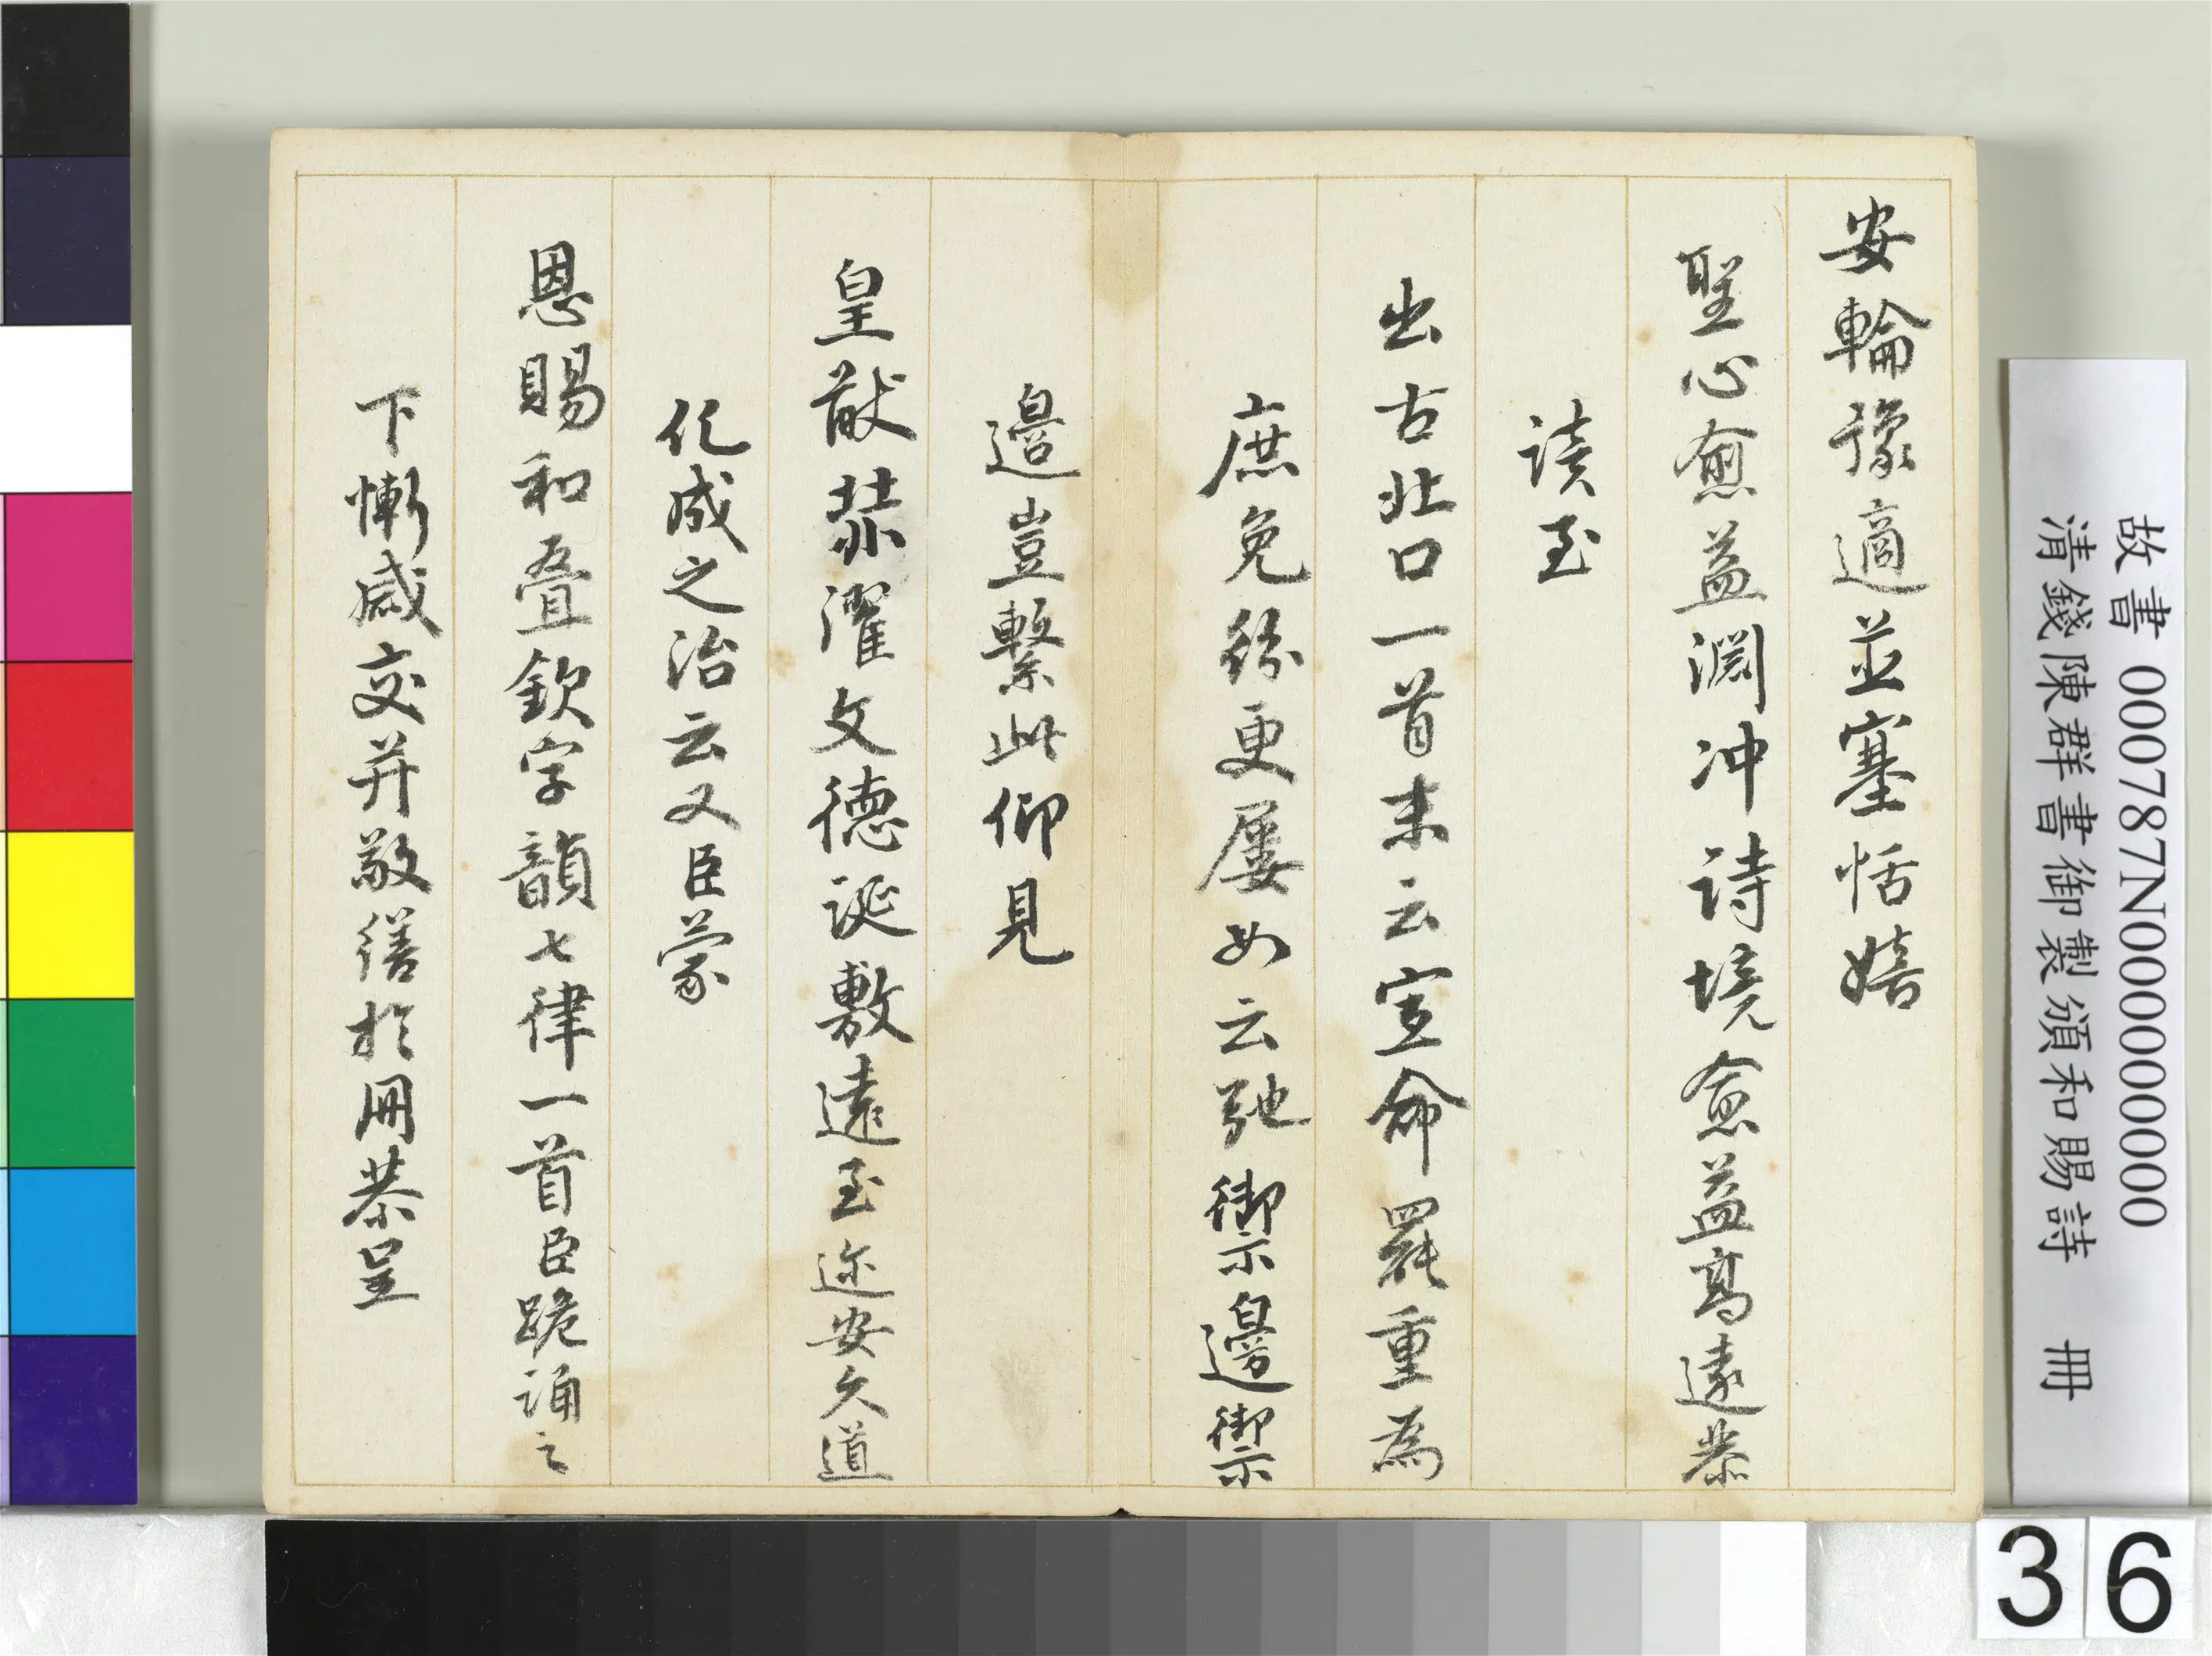 安輪豫適並塞恬嬉
聖心愈益淵冲詩境愈益高遠恭
讀至
出古北口一首末云宣命羅重為
庶免紛更屢如云弛禦邊禦
邊豈繫此仰見
皇猷恭濯文德誕敷遠至迩安久道
化成之治云又臣蒙
恩賜和叠欽字韻七律一首臣跪誦之
下慚感交并敬繕於冊恭呈
故書 000787N000000000
清錢陳群書御製頒和賜詩 冊
36